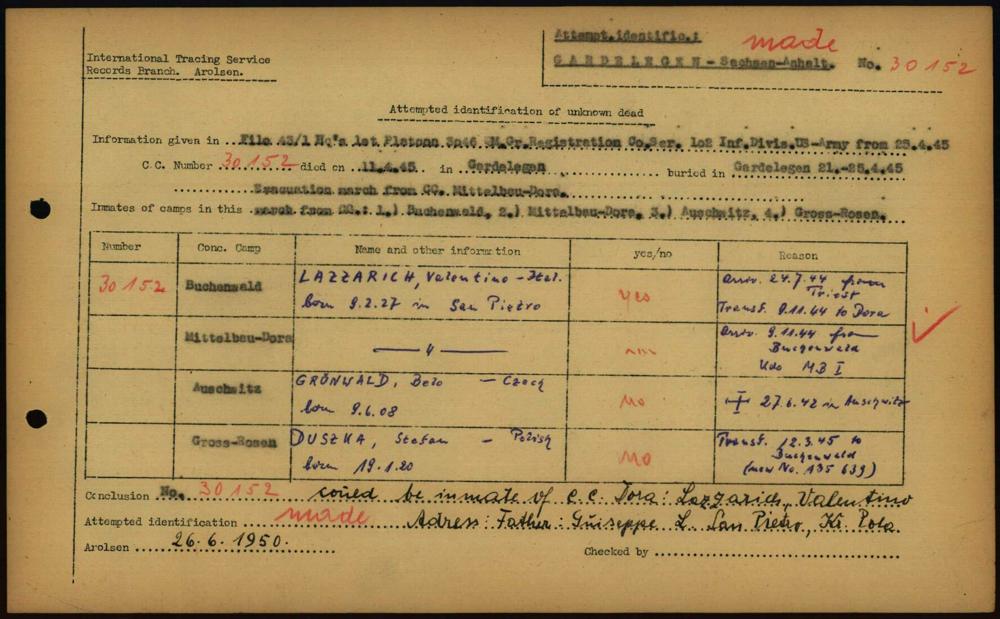 Attempt.identific.:
made
International Tracing Service
Records Branch. Arolsen.
GARDELEGEN - Sachsen-Anhalt. No. 30152
Attempted identification of unknown dead
Information given in File 43/1 Hq's 1st Platoon 3046 QM.Gr.Registration Co.Ser. 102 Inf.Divis.US-Army from 25.4.45
C.C. Number 30152 died on 11.4.45 in Gardelegen buried in Gardelegen 21.-25.4.45
Evacuation march from CC. Mittelbau-Dora.
Inmates of camps in this march from CC.: 1.) Buchenwald, 2.) Mittelbau-Dora, 3.) Auschwitz, 4.) Gross-Rosen.
Number Conc. Camp Name and other information yes/no Reason
30152 Buchenwald LAZZARICH, Valentino - Ital. born 9.2.27 in San Pietro yes Arriv. 24.7.44 from Triest Transf. 9.11.44 to Dora
Mittelbau-Dora — " — Arriv. 9.11.44 from Buchenwald Kdo MB I
Auschwitz GRÖNWALD, Belo - Czech born 9.6.08 No 27.6.42 in Auschwitz
Gross-Rosen DUSZKA, Stefan - Polish born 19.1.20 No Transf. 12.3.45 to Buchenwald (new No. 135 639)
Conclusion No. 30152 could be inmate of c.c. Dora: Lazzarich, Valentino
Attempted identification made Adress: Father: Guiseppe L. San Pietro, Kr. Pola
Arolsen 26.6.1950. Checked by